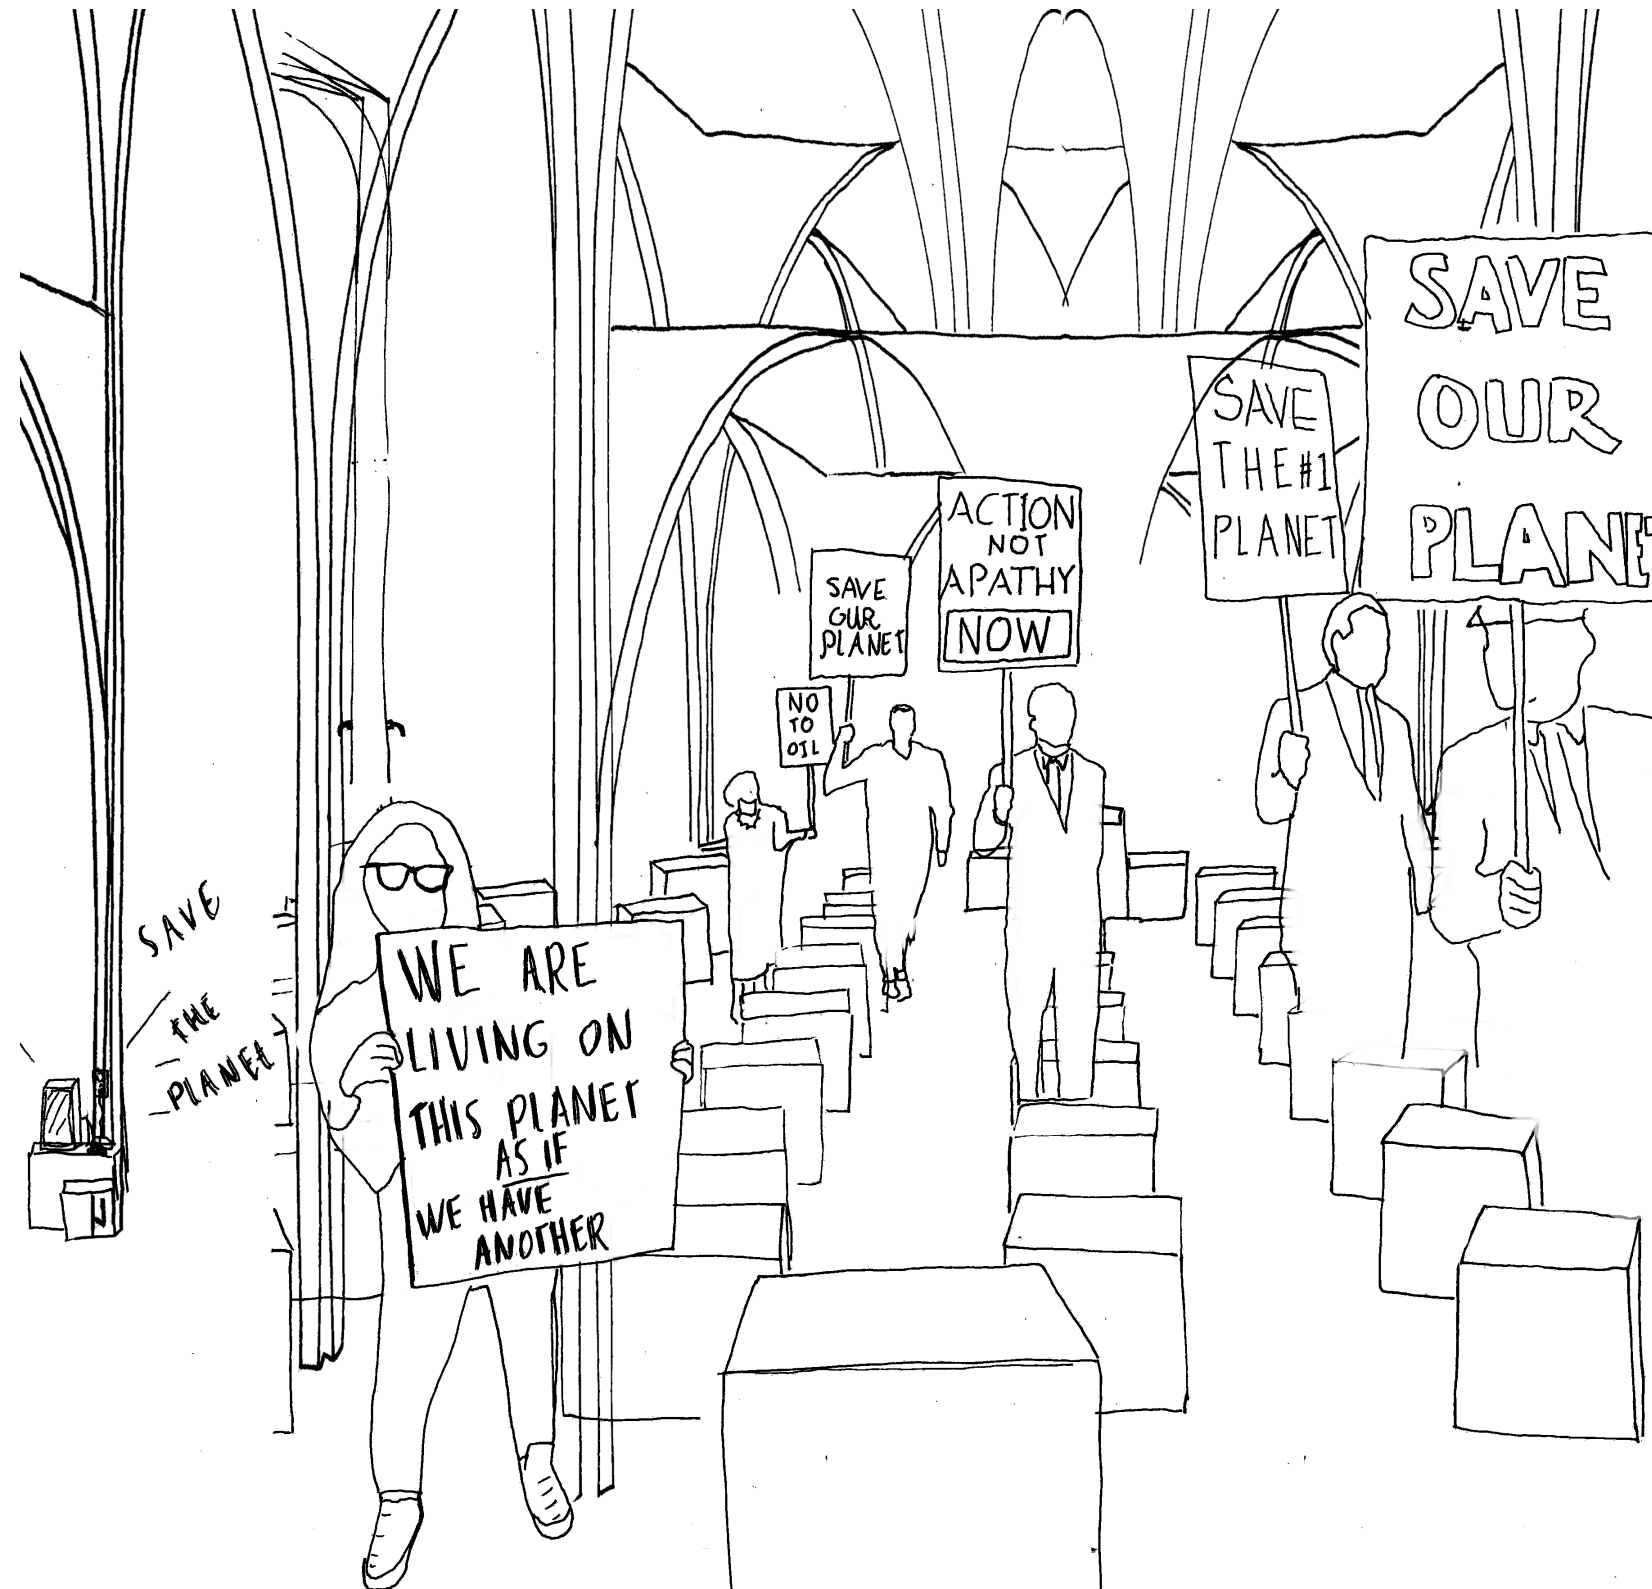 SAVE
THE
PLANET
WE ARE
LIVING ON
THIS PLANET
AS IF
WE HAVE
ANOTHER
NO
TO
OIL
SAVE
OUR
PLANET
ACTION
NOT
APATHY
NOW
SAVE
THE #1
PLANET
SAVE
OUR
PLANE